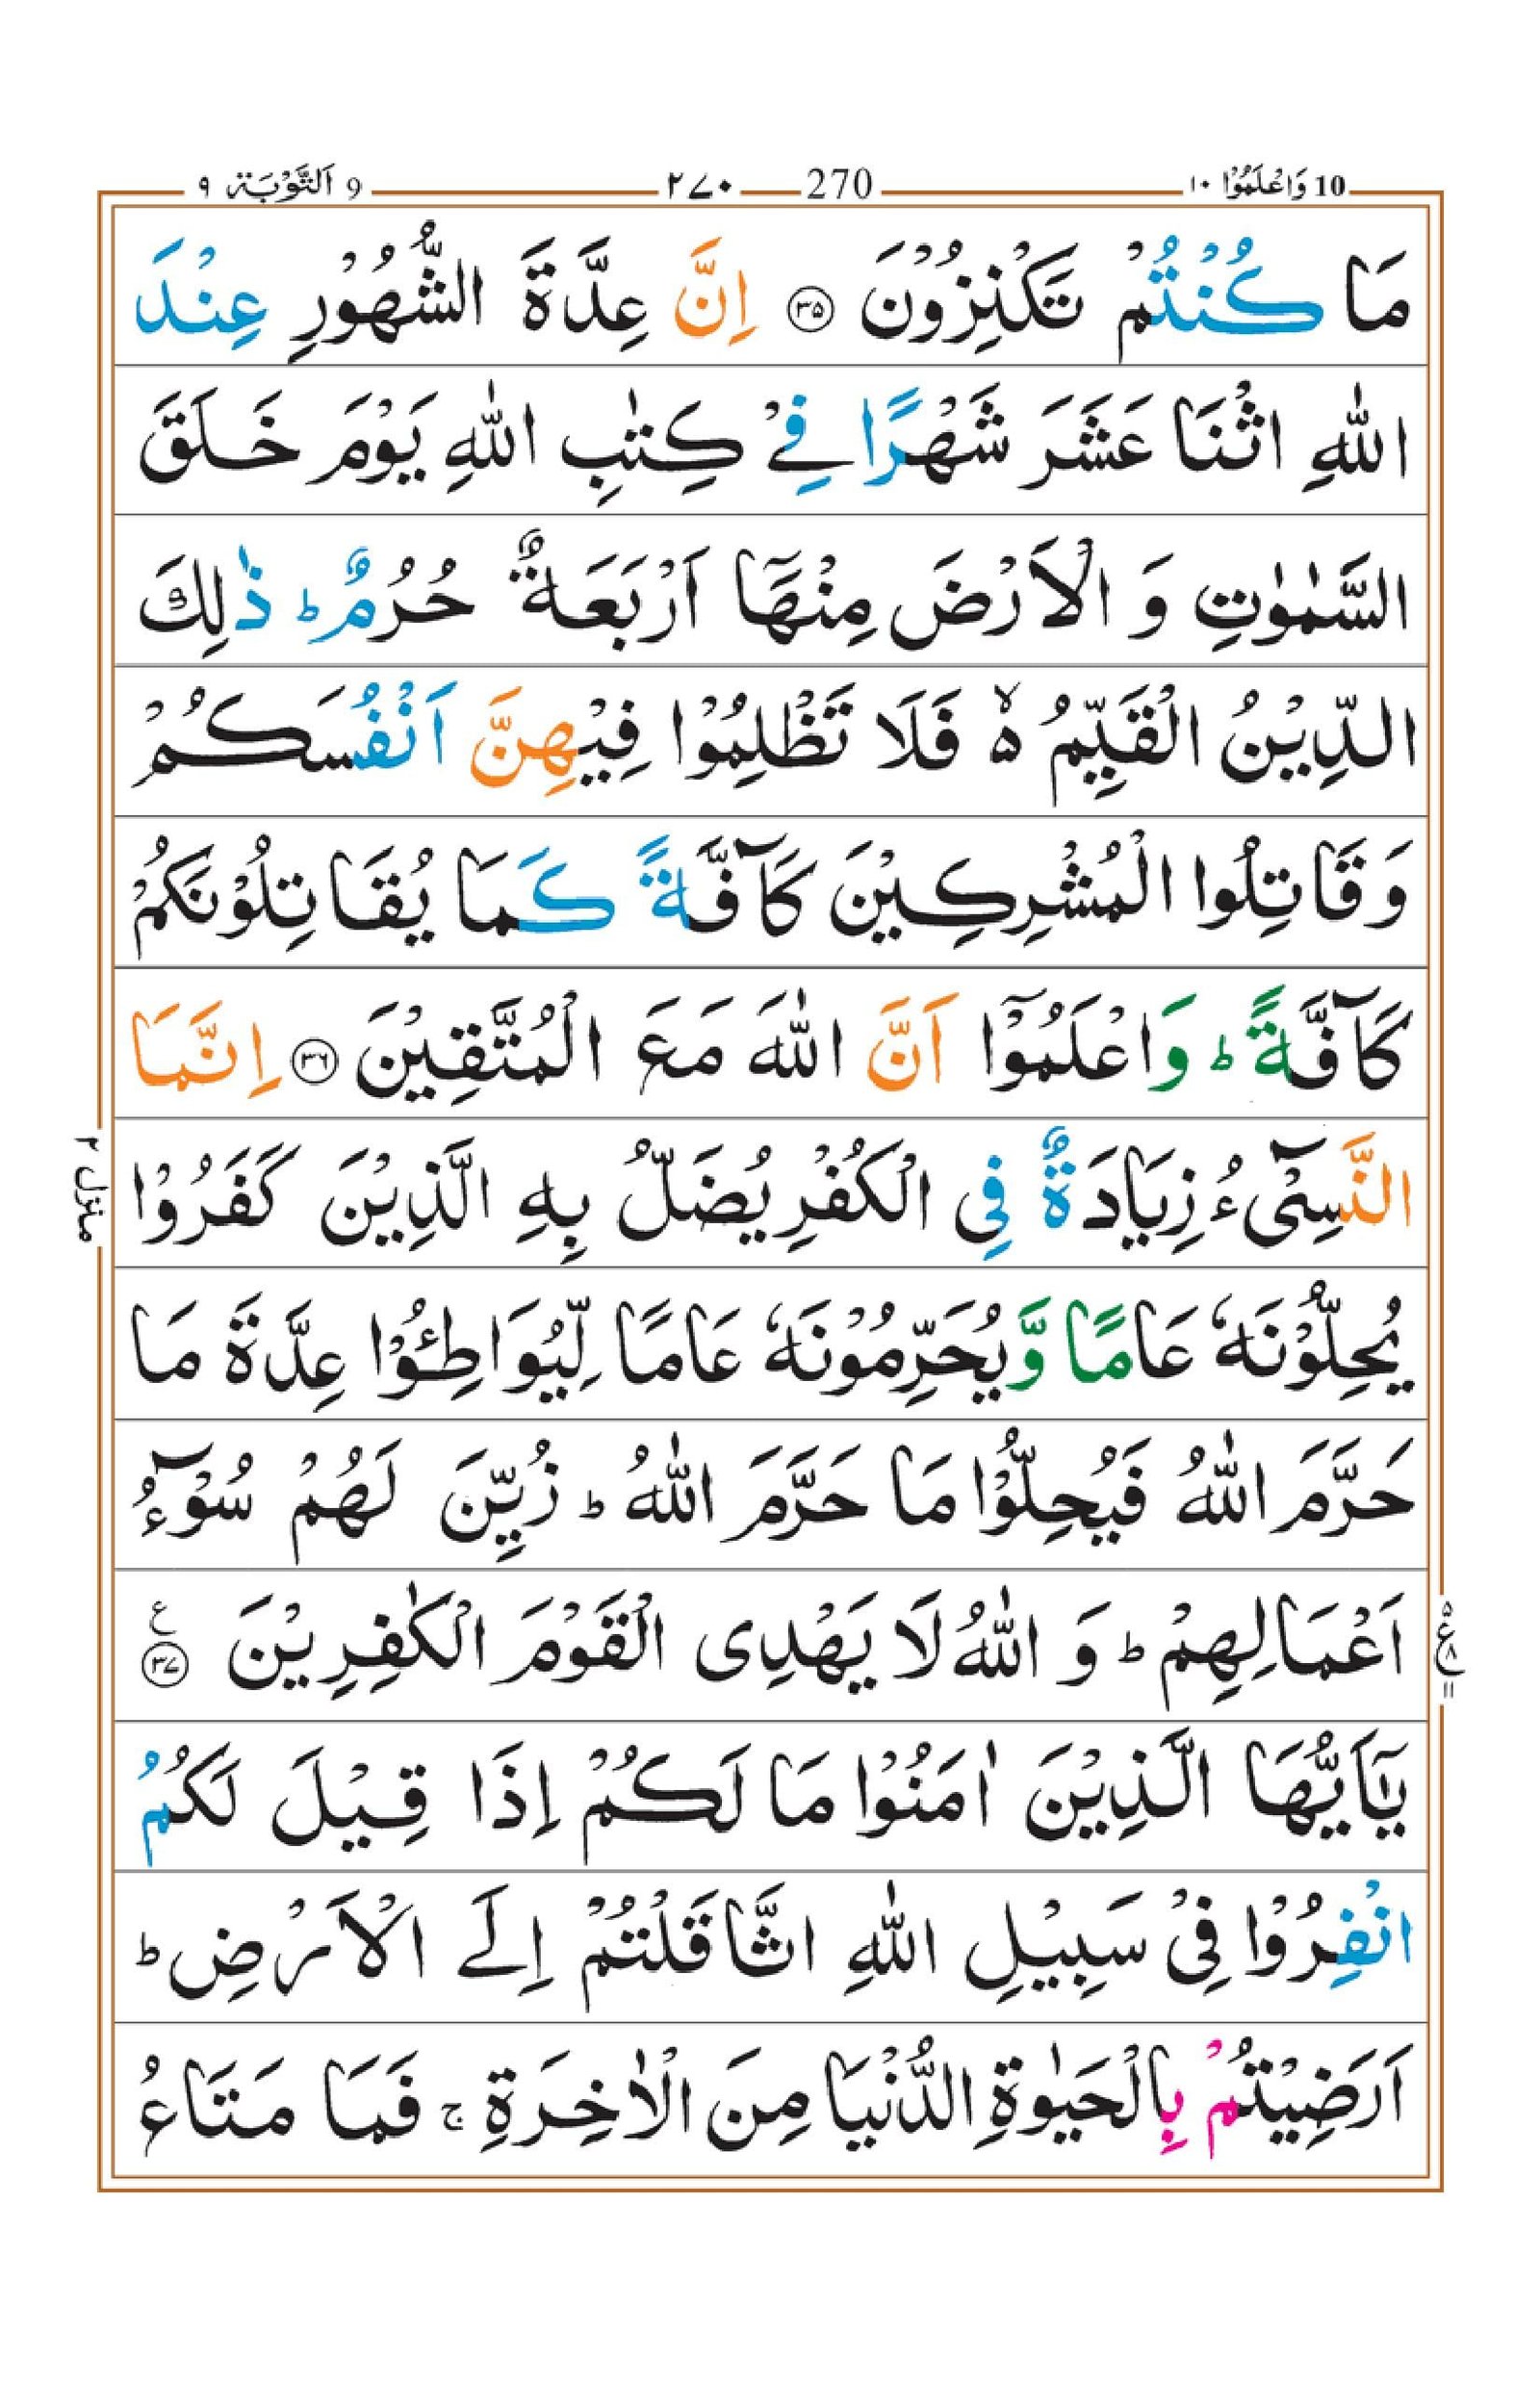 10 وَاعْلَمُوْۤا ١٠ 270 ٢٧٠ 9 اَلتَّوْبَة ٩
مَا كُنْتُمْ تَكْنِزُوْنَ ﴿۳۵﴾ اِنَّ عِدَّةَ الشُّهُوْرِ عِنْدَ
اللّٰهِ اثْنَا عَشَرَ شَهْرًا فِیْ كِتٰبِ اللّٰهِ یَوْمَ خَلَقَ
السَّمٰوٰتِ وَ الْاَرْضَ مِنْهَاۤ اَرْبَعَةٌ حُرُمٌ ؕ ذٰلِكَ
الدِّیْنُ الْقَیِّمُ ۙ۬ فَلَا تَظْلِمُوْا فِیْهِنَّ اَنْفُسَكُمْ
وَ قَاتِلُوا الْمُشْرِكِیْنَ كَآفَّةً كَمَا یُقَاتِلُوْنَكُمْ
كَآفَّةً ؕ وَاعْلَمُوْۤا اَنَّ اللّٰهَ مَعَ الْمُتَّقِیْنَ ﴿۳۶﴾ اِنَّمَا
النَّسِیْٓءُ زِیَادَةٌ فِی الْكُفْرِ یُضَلُّ بِهِ الَّذِیْنَ كَفَرُوْا
یُحِلُّوْنَهٗ عَامًا وَّیُحَرِّمُوْنَهٗ عَامًا لِّیُوَاطِـُٔوْا عِدَّةَ مَا
حَرَّمَ اللّٰهُ فَیُحِلُّوْا مَا حَرَّمَ اللّٰهُ ؕ زُیِّنَ لَهُمْ سُوْٓءُ
اَعْمَالِهِمْ ؕ وَ اللّٰهُ لَا یَهْدِی الْقَوْمَ الْكٰفِرِیْنَ ﴿۳۷﴾ ع
یٰۤاَیُّهَا الَّذِیْنَ اٰمَنُوْا مَا لَكُمْ اِذَا قِیْلَ لَكُمُ
انْفِرُوْا فِیْ سَبِیْلِ اللّٰهِ اثَّاقَلْتُمْ اِلَی الْاَرْضِ ؕ
اَرَضِیْتُمْ بِالْحَیٰوةِ الدُّنْیَا مِنَ الْاٰخِرَةِ ۚ فَمَا مَتَاعُ
منزل ٢
٥ ع ٨ ١١